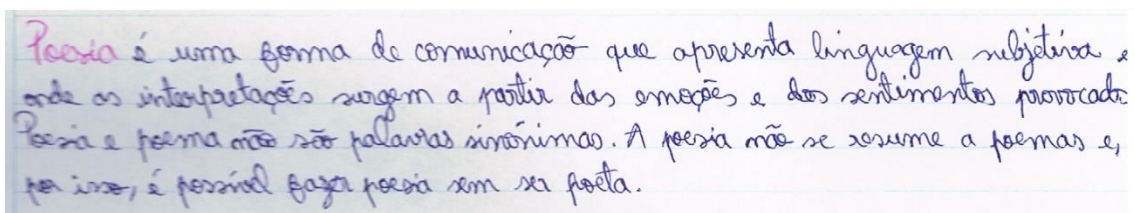 Poesia é uma forma de comunicação que apresenta linguagem subjetiva e
onde as interpretações surgem a partir das emoções e dos sentimentos provocado
Poesia e poema não são palavras sinônimas. A poesia não se resume a poemas e,
por isso, é possível fazer poesia sem ser poeta.